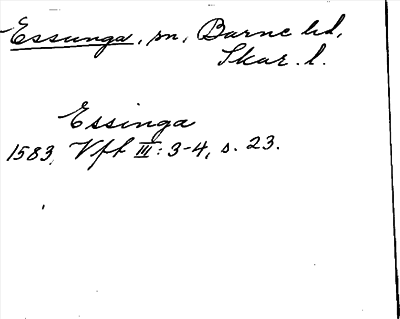 Essunga, sn, Barne hd,
Skar. l.
Essinga
1583, Vft III: 3-4, s. 23.